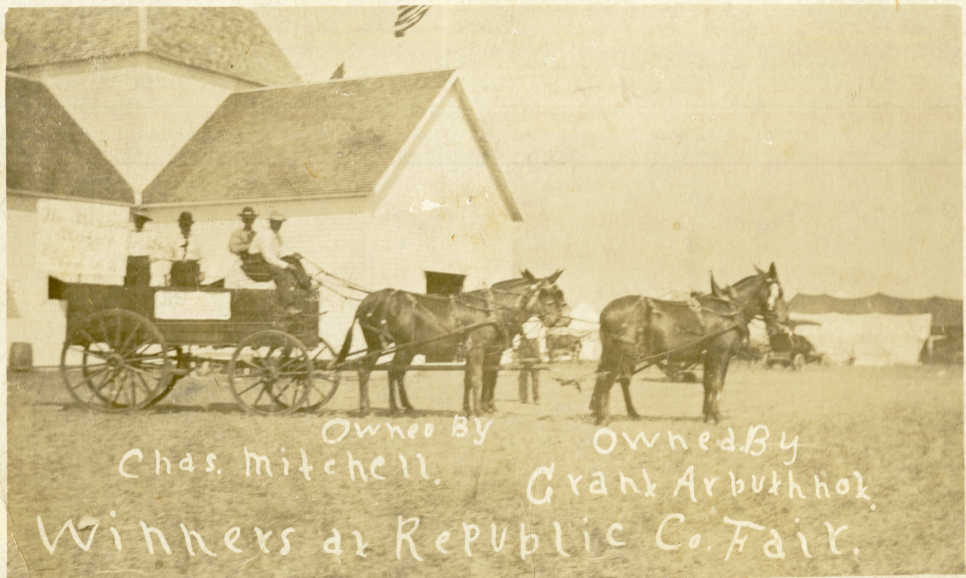 Owned By
Chas. Mitchell.
Owned.By
Grant Arbuthnot.
Winners at Republic Co. Fair.